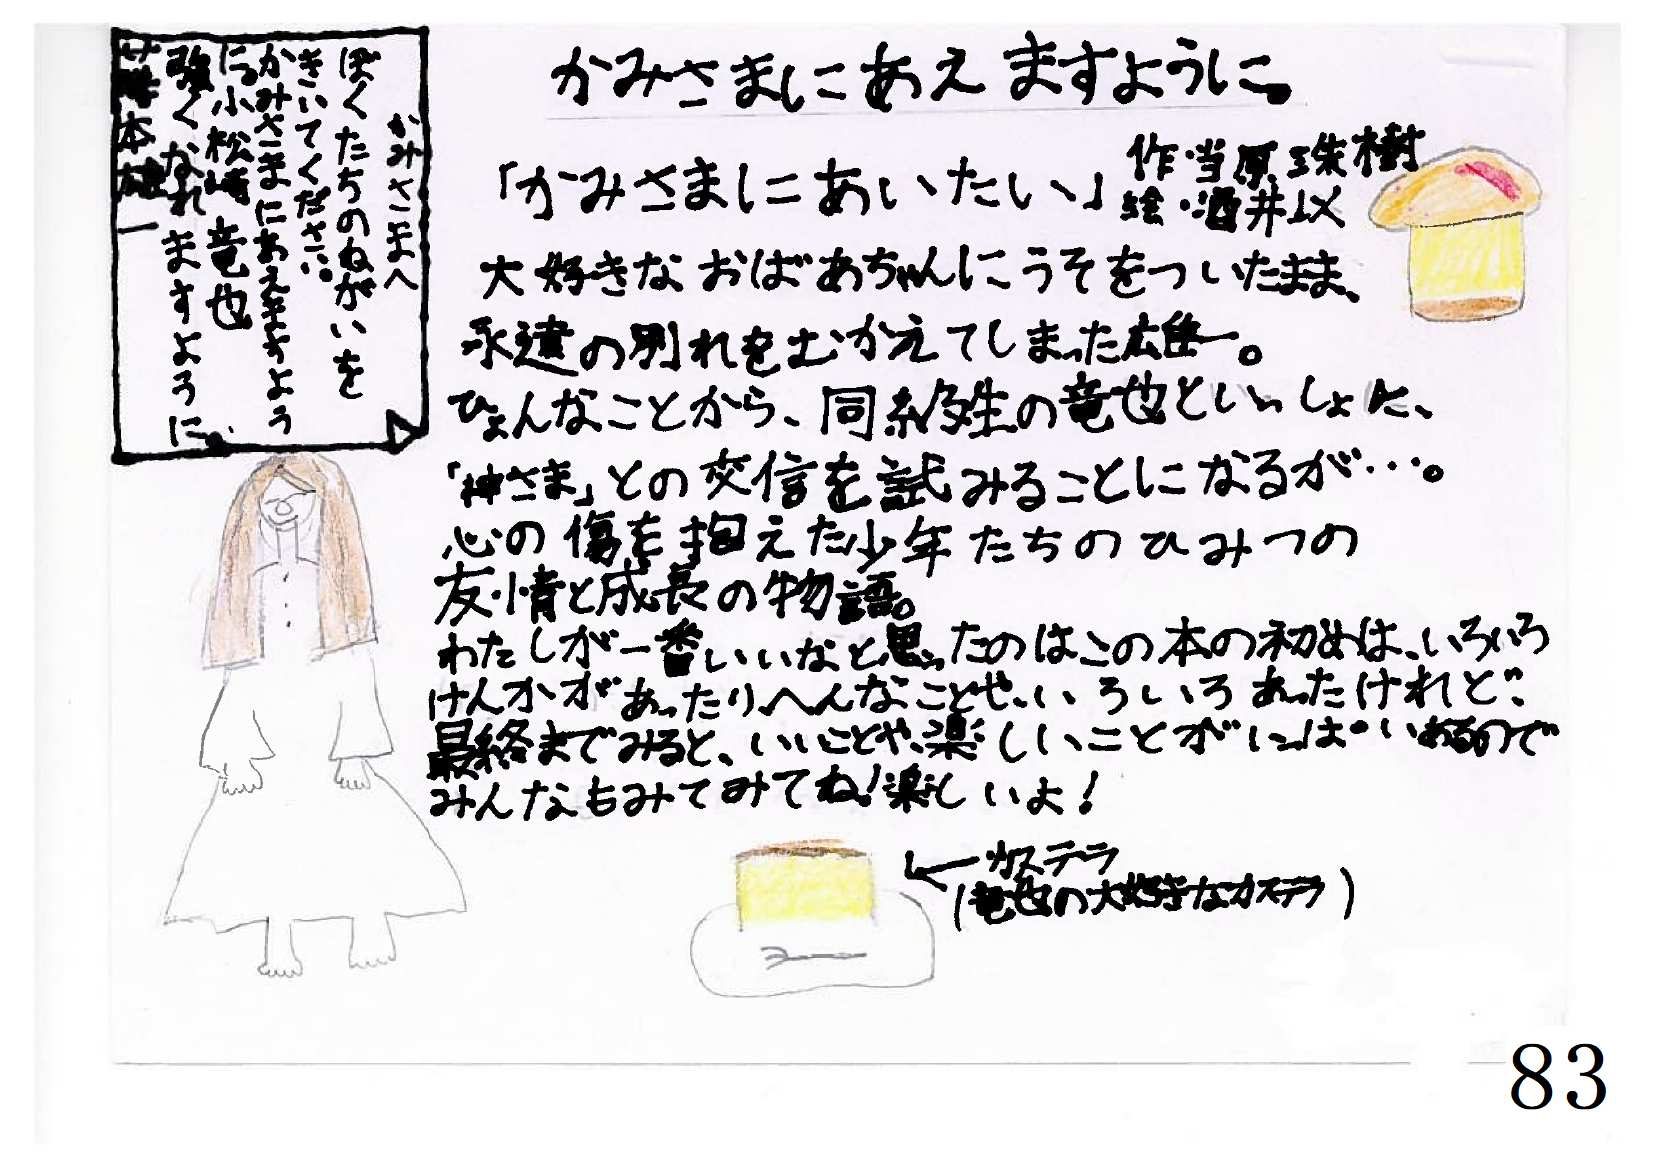 かみさまにあえますように。
「かみさまにあいたい」
作・当原珠樹
絵・酒井以
大好きなおばあちゃんにうそをついたまま、
永遠の別れをむかえてしまった雄一。
ひょんなことから、同級生の竜也といっしょに、
「神さま」との交信を試みることになるが…。
心の傷を抱えた少年たちのひみつの
友情と成長の物語。
わたしが一番いいなと思ったのはこの本の初めは、いろいろ
けんかがあったり、へんなことや、いろいろあったけれど、
最終までみると、いいことや、楽しいことがいっぱいあるので
みんなもみてみてね!楽しいよ!
かみさまへ
ぼくたちのねがいを
きいてください。
かみさまにあえますよう
に。小松崎竜也
強くなれますように。
本雄一
←カステラ
(竜也の大好きなカステラ)
83